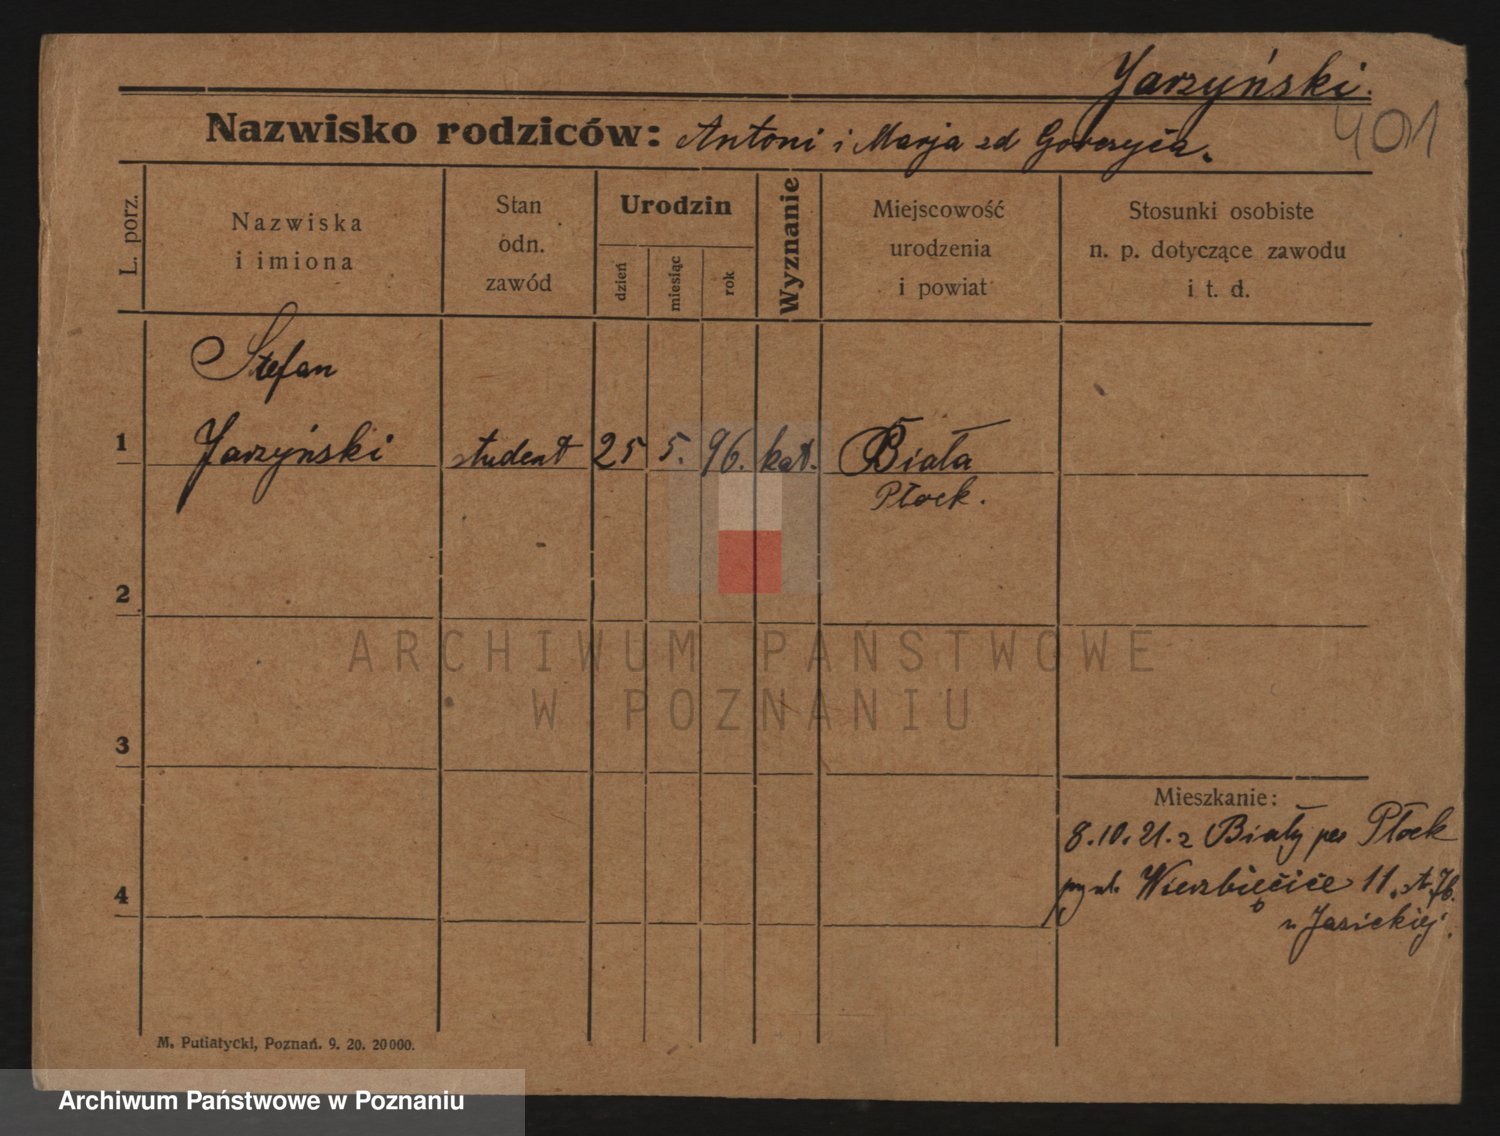 Jarzyński.
401
Nazwisko rodziców: Antoni i Marja zd Gorczyca.
L. porz.
Nazwiska
i imiona
Stan
odn.
zawód
Urodzin
dzień
miesiąc
rok
Wyznanie
Miejscowość
urodzenia
i powiat
Stosunki osobiste
n. p. dotyczące zawodu
i t. d.
Stefan
1 Jarzyński student 25 5. 96. kat. Biała
Płock.
2
3
4
Mieszkanie:
8.10.21. z Biały Płock
Wierzbięcice 11,
u Jasickiej.
M. Putiatycki, Poznań. 9. 20. 20000.
ARCHIWUM PAŃSTWOWE
W POZNANIU
Archiwum Państwowe w Poznaniu